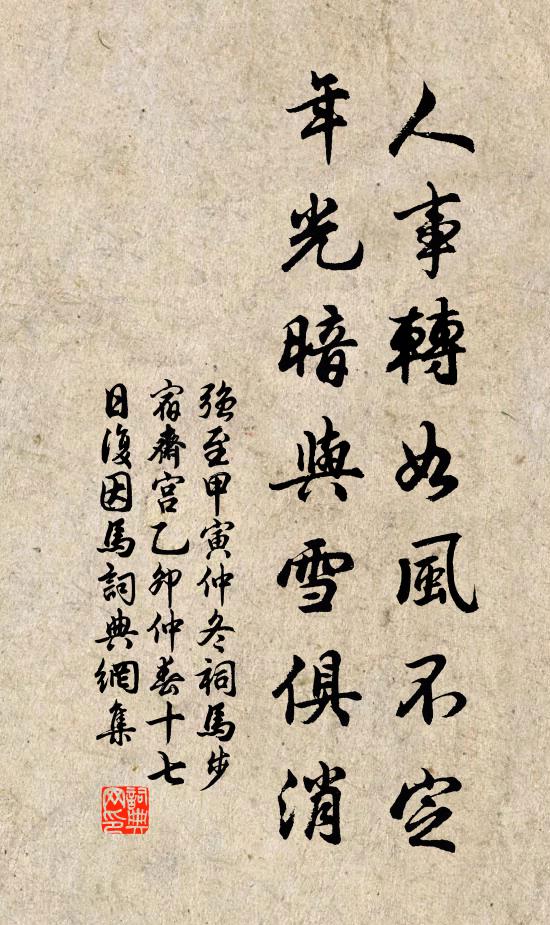 人事轉如風不定
年光暗與雪俱消
強至甲寅仲冬祠馬步
宿齋宮乙卯仲春十七
日復因馬詞典網集
詞典
网印